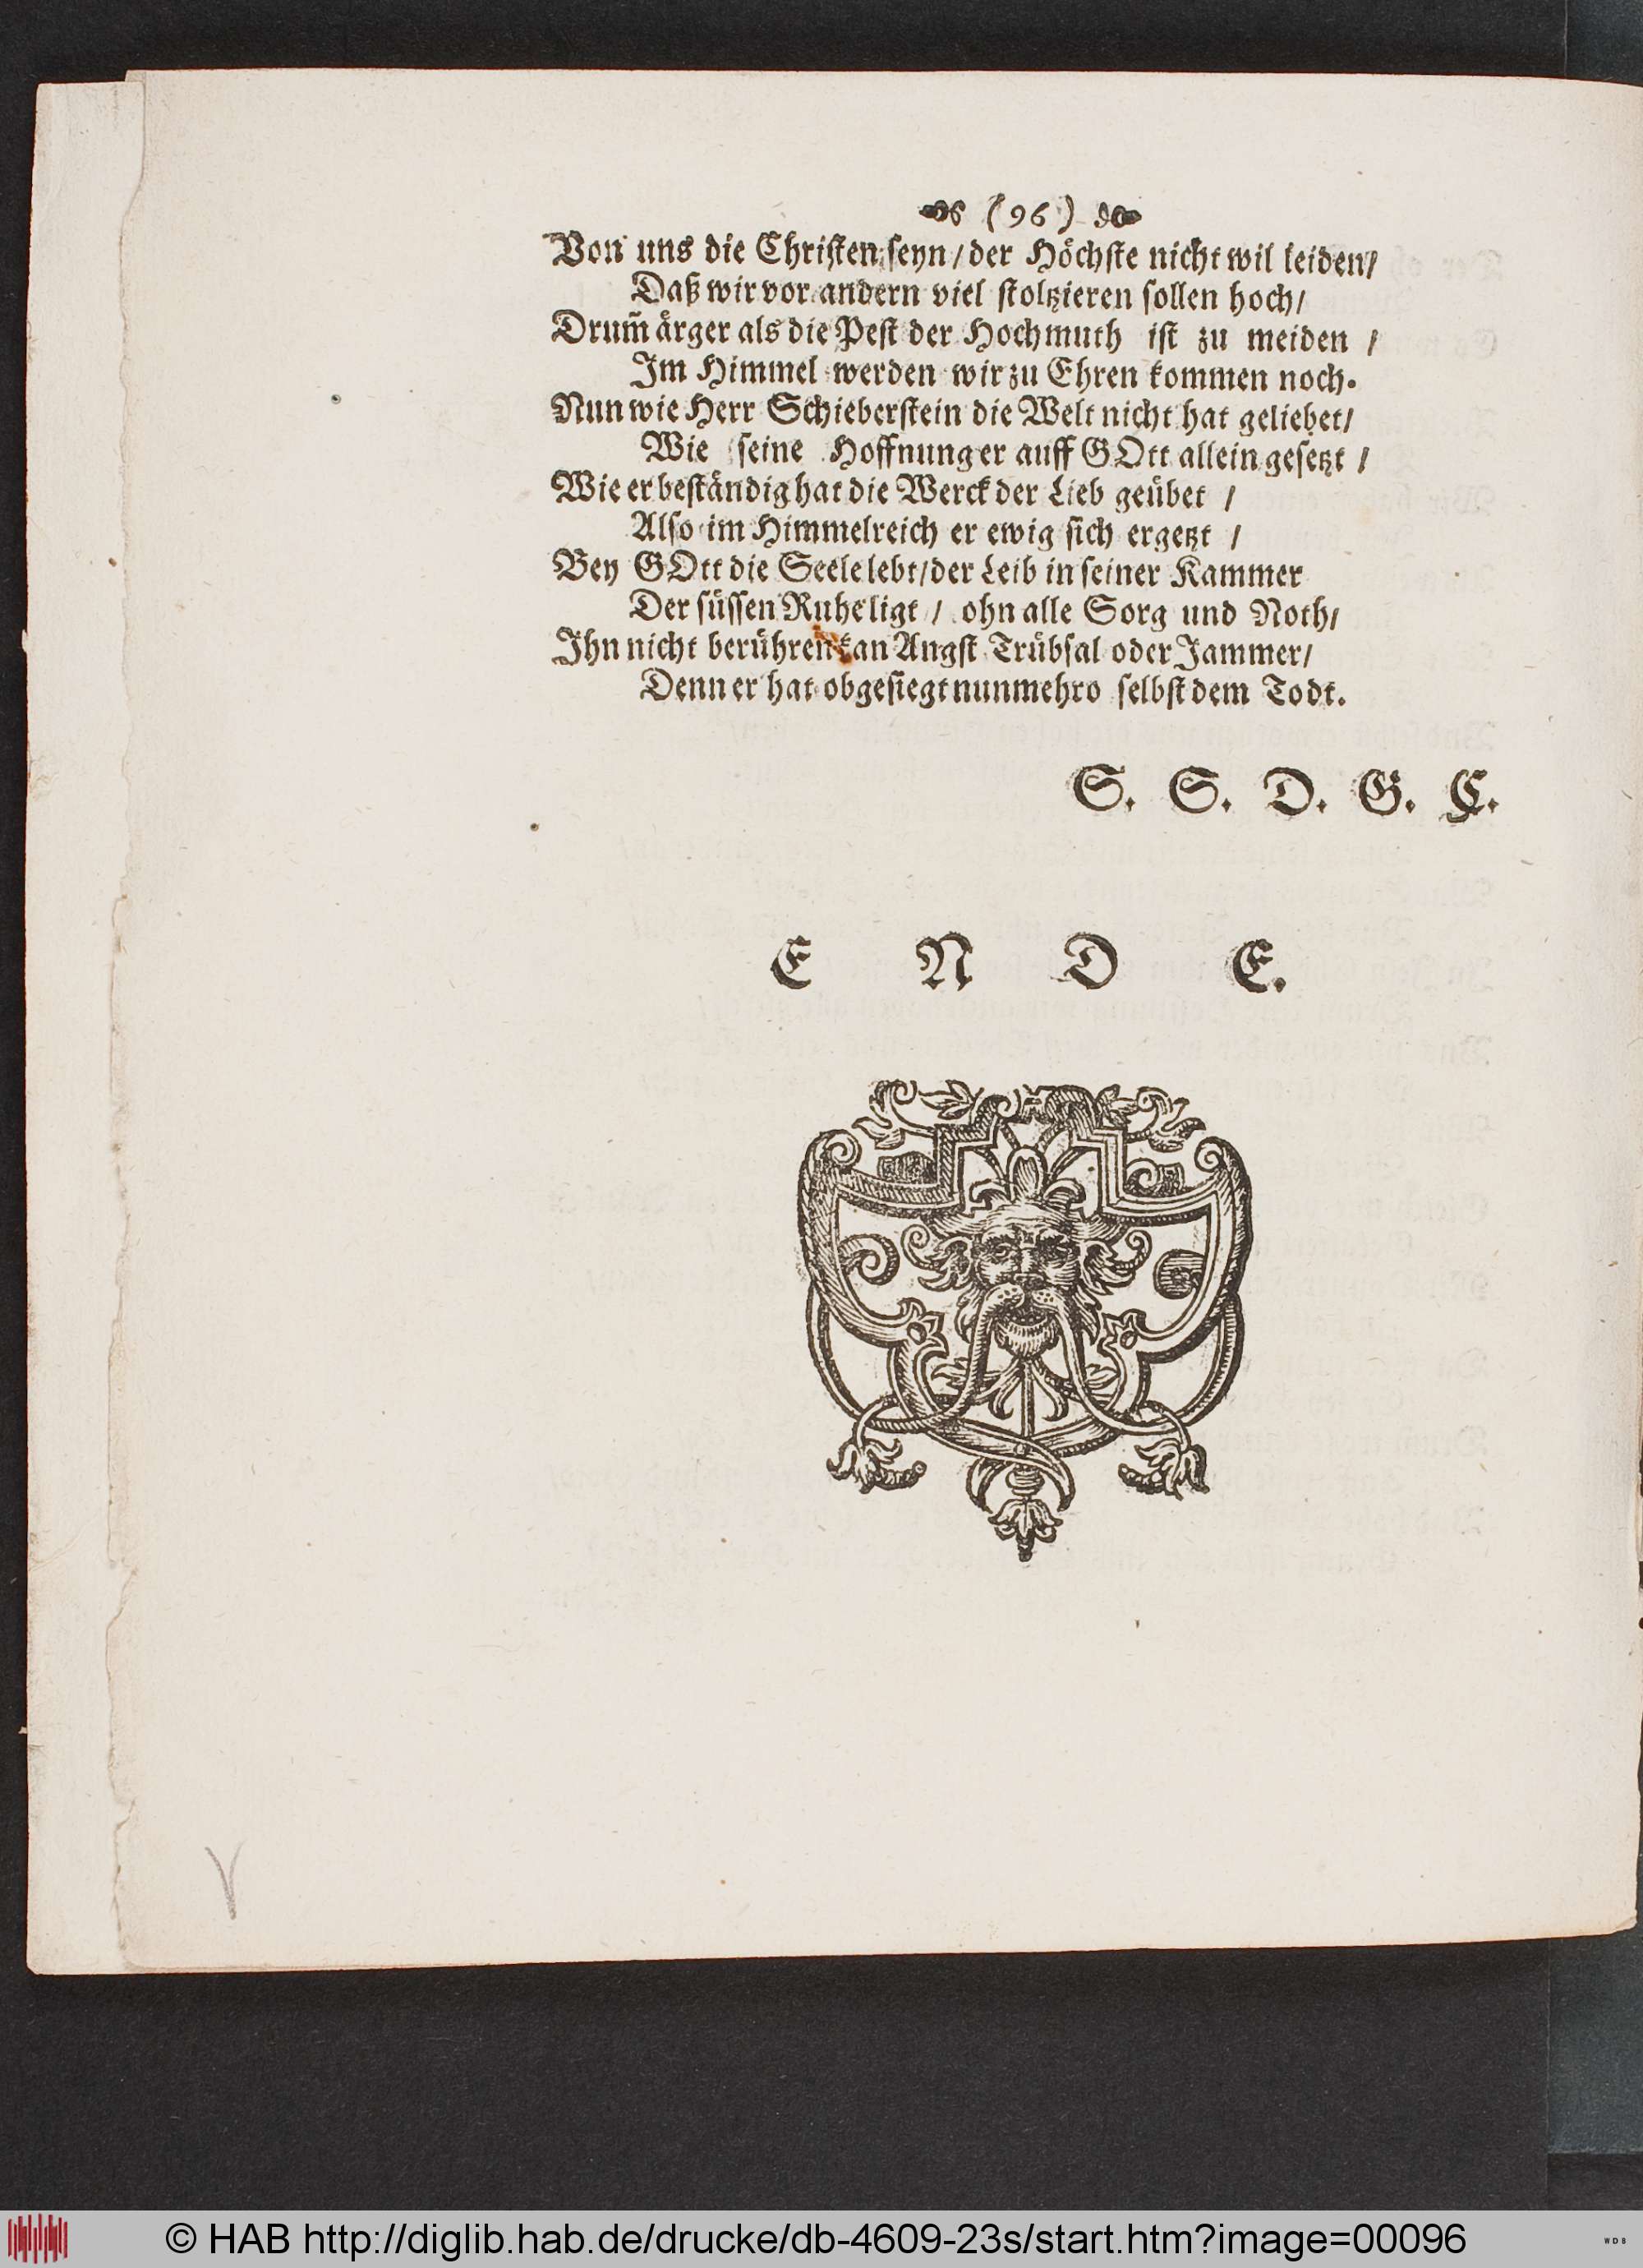 (96)
Von uns die Christen seyn / der Höchste nicht wil leiden /
Daß wir vor andern viel stoltzieren sollen hoch /
Drum̃ ärger als die Pest der Hochmuth ist zu meiden /
Im Himmel werden wir zu Ehren kommen noch.
Nun wie Herr Schieberstein die Welt nicht hat geliebet /
Wie seine Hoffnung er auff GOtt allein gesetzt /
Wie er beständig hat die Werck der Lieb geübet /
Also im Himmelreich er ewig sich ergetzt /
Bey GOtt die Seele lebt / der Leib in seiner Kammer
Der süssen Ruhe ligt / ohn alle Sorg und Noth /
Ihn nicht berühren kan Angst Trübsal oder Jammer /
Denn er hat obgesiegt nunmehro selbst dem Todt.
S. S. D. G. C.
E N D E.
© HAB http://diglib.hab.de/drucke/db-4609-23s/start.htm?image=00096